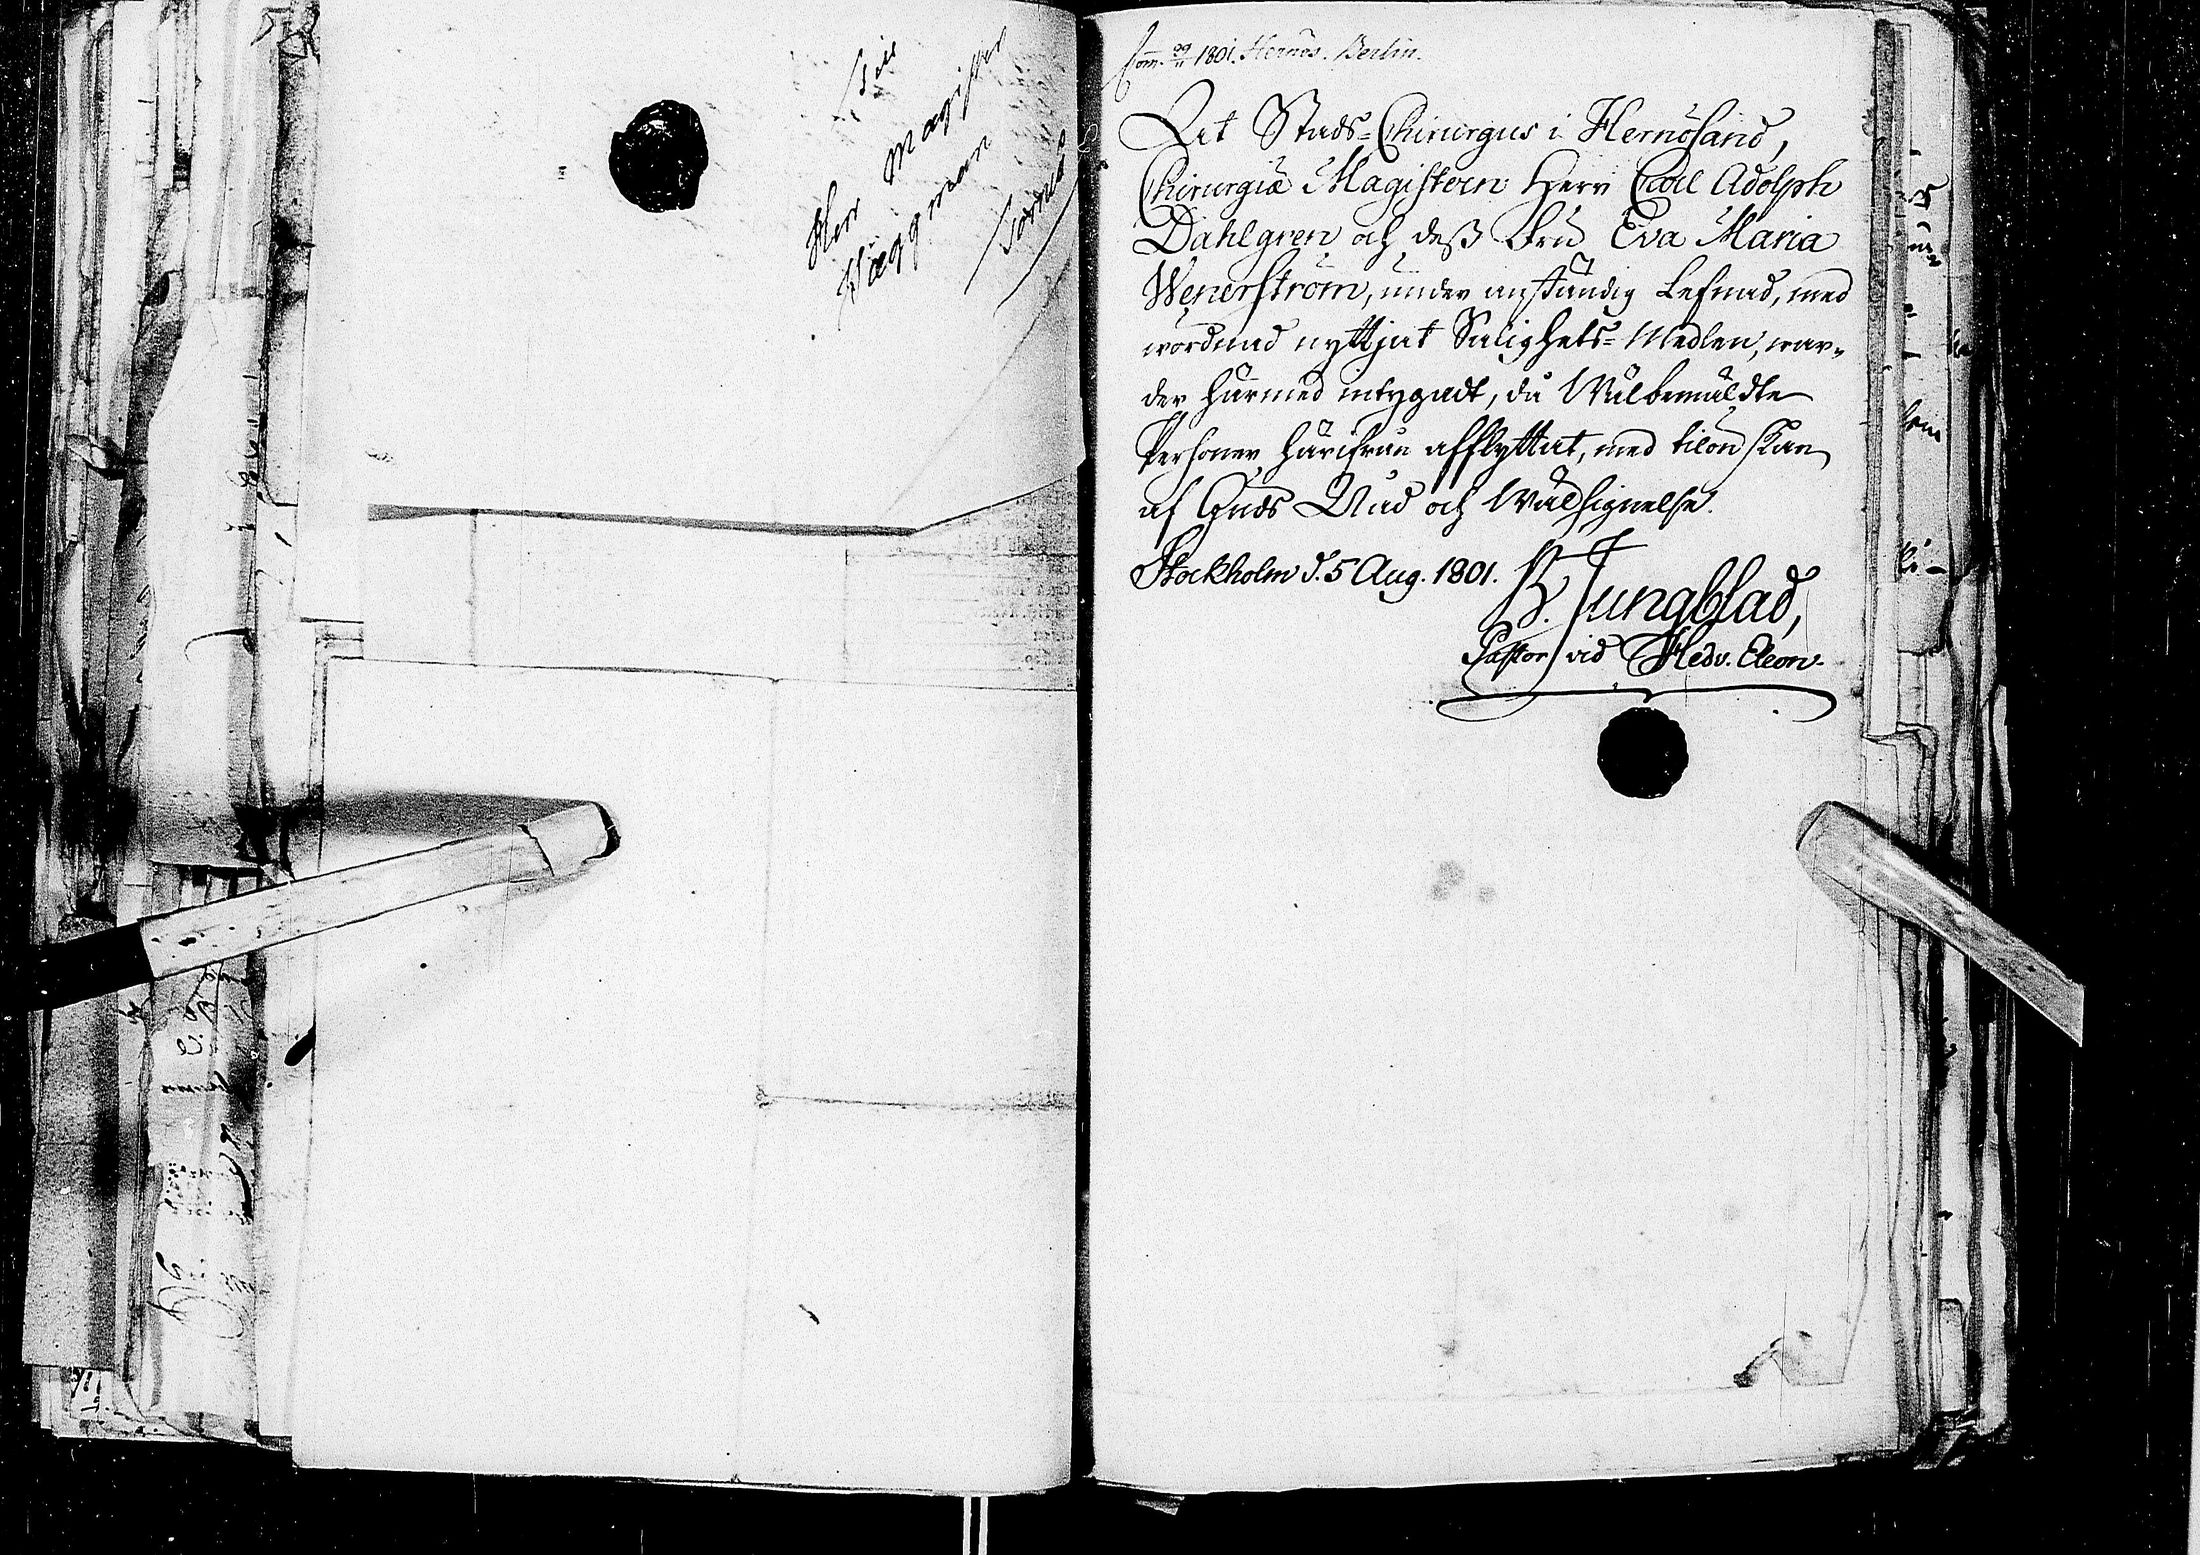 Till
Herr Magister
Häggman
Com. 29/11 1801. Hernös. Berlin.
At Stads-Chirurgus i Hernösand,
Chirurgiæ Magistern Herr Carl Adolph
Dahlgren och dess Fru Eva Maria
Wenerström, under anständig Lefnad, med
wördnad nyttjat Salighets-Medlen, war-
der härmed intygadt, då Wälbemäldte
Personer härifrån afflyttat, med tilönskan
af Guds Nåd och Wälsignelse.
Stockholm d. 5 Aug. 1801.
Jungblad,
Pastor vid Hedv. Eleon.